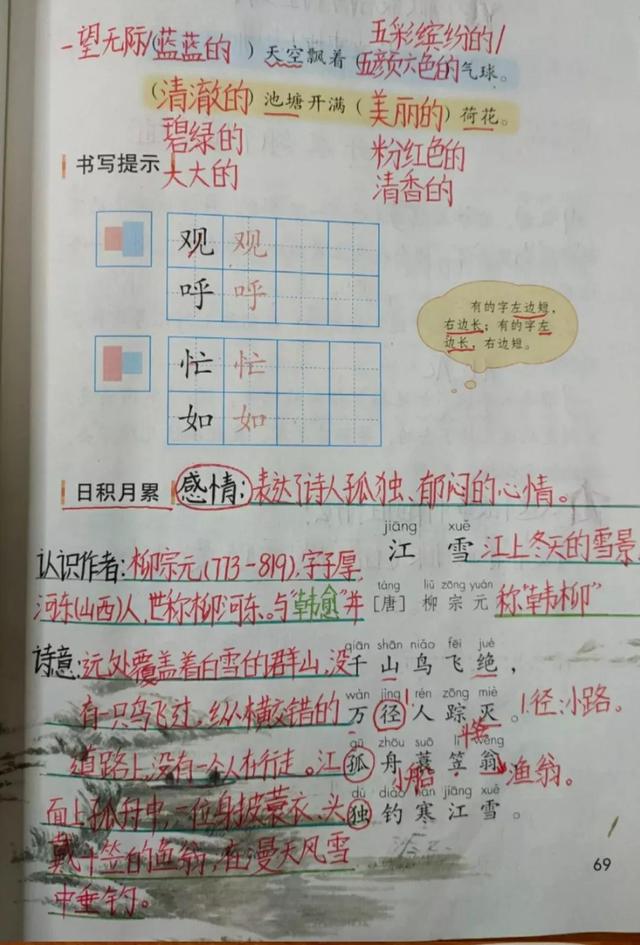 一望无际/(蓝蓝的 )天空飘着(五颜六色的)气球。
五彩缤纷的/
(清澈的)池塘开满(美丽的)荷花。
碧绿的
大大的
粉红色的
清香的
书写提示
观 观
呼 呼
忙 忙
如 如
有的字左边短，
右边长；有的字左
边长，右边短。
日积月累 感情：表达了诗人孤独、郁闷的心情。
jiāng xuě
江 雪 江上冬天的雪景
认识作者：柳宗元(773-819)，字子厚，
táng liǔ zōng yuán
河东(山西)人，世称柳河东。与"韩愈"并
[唐] 柳 宗 元 称"韩柳"
诗意：远处覆盖着白雪的群山，没
qiān shān niǎo fēi jué
千 山 鸟 飞 绝，
有一只鸟飞过，纵横交错的
wàn jìng rén zōng miè
万 径 人 踪 灭。 1.径：小路。
道路上，没有一个人在行走。江
gū zhōu suō lì wēng
孤 舟 蓑 笠 翁， 渔翁。
小船
面上孤舟中，一位身披蓑衣、头
dú diào hán jiāng xuě
独 钓 寒 江 雪。
戴斗笠的渔翁，在漫天风雪
中垂钓。
69